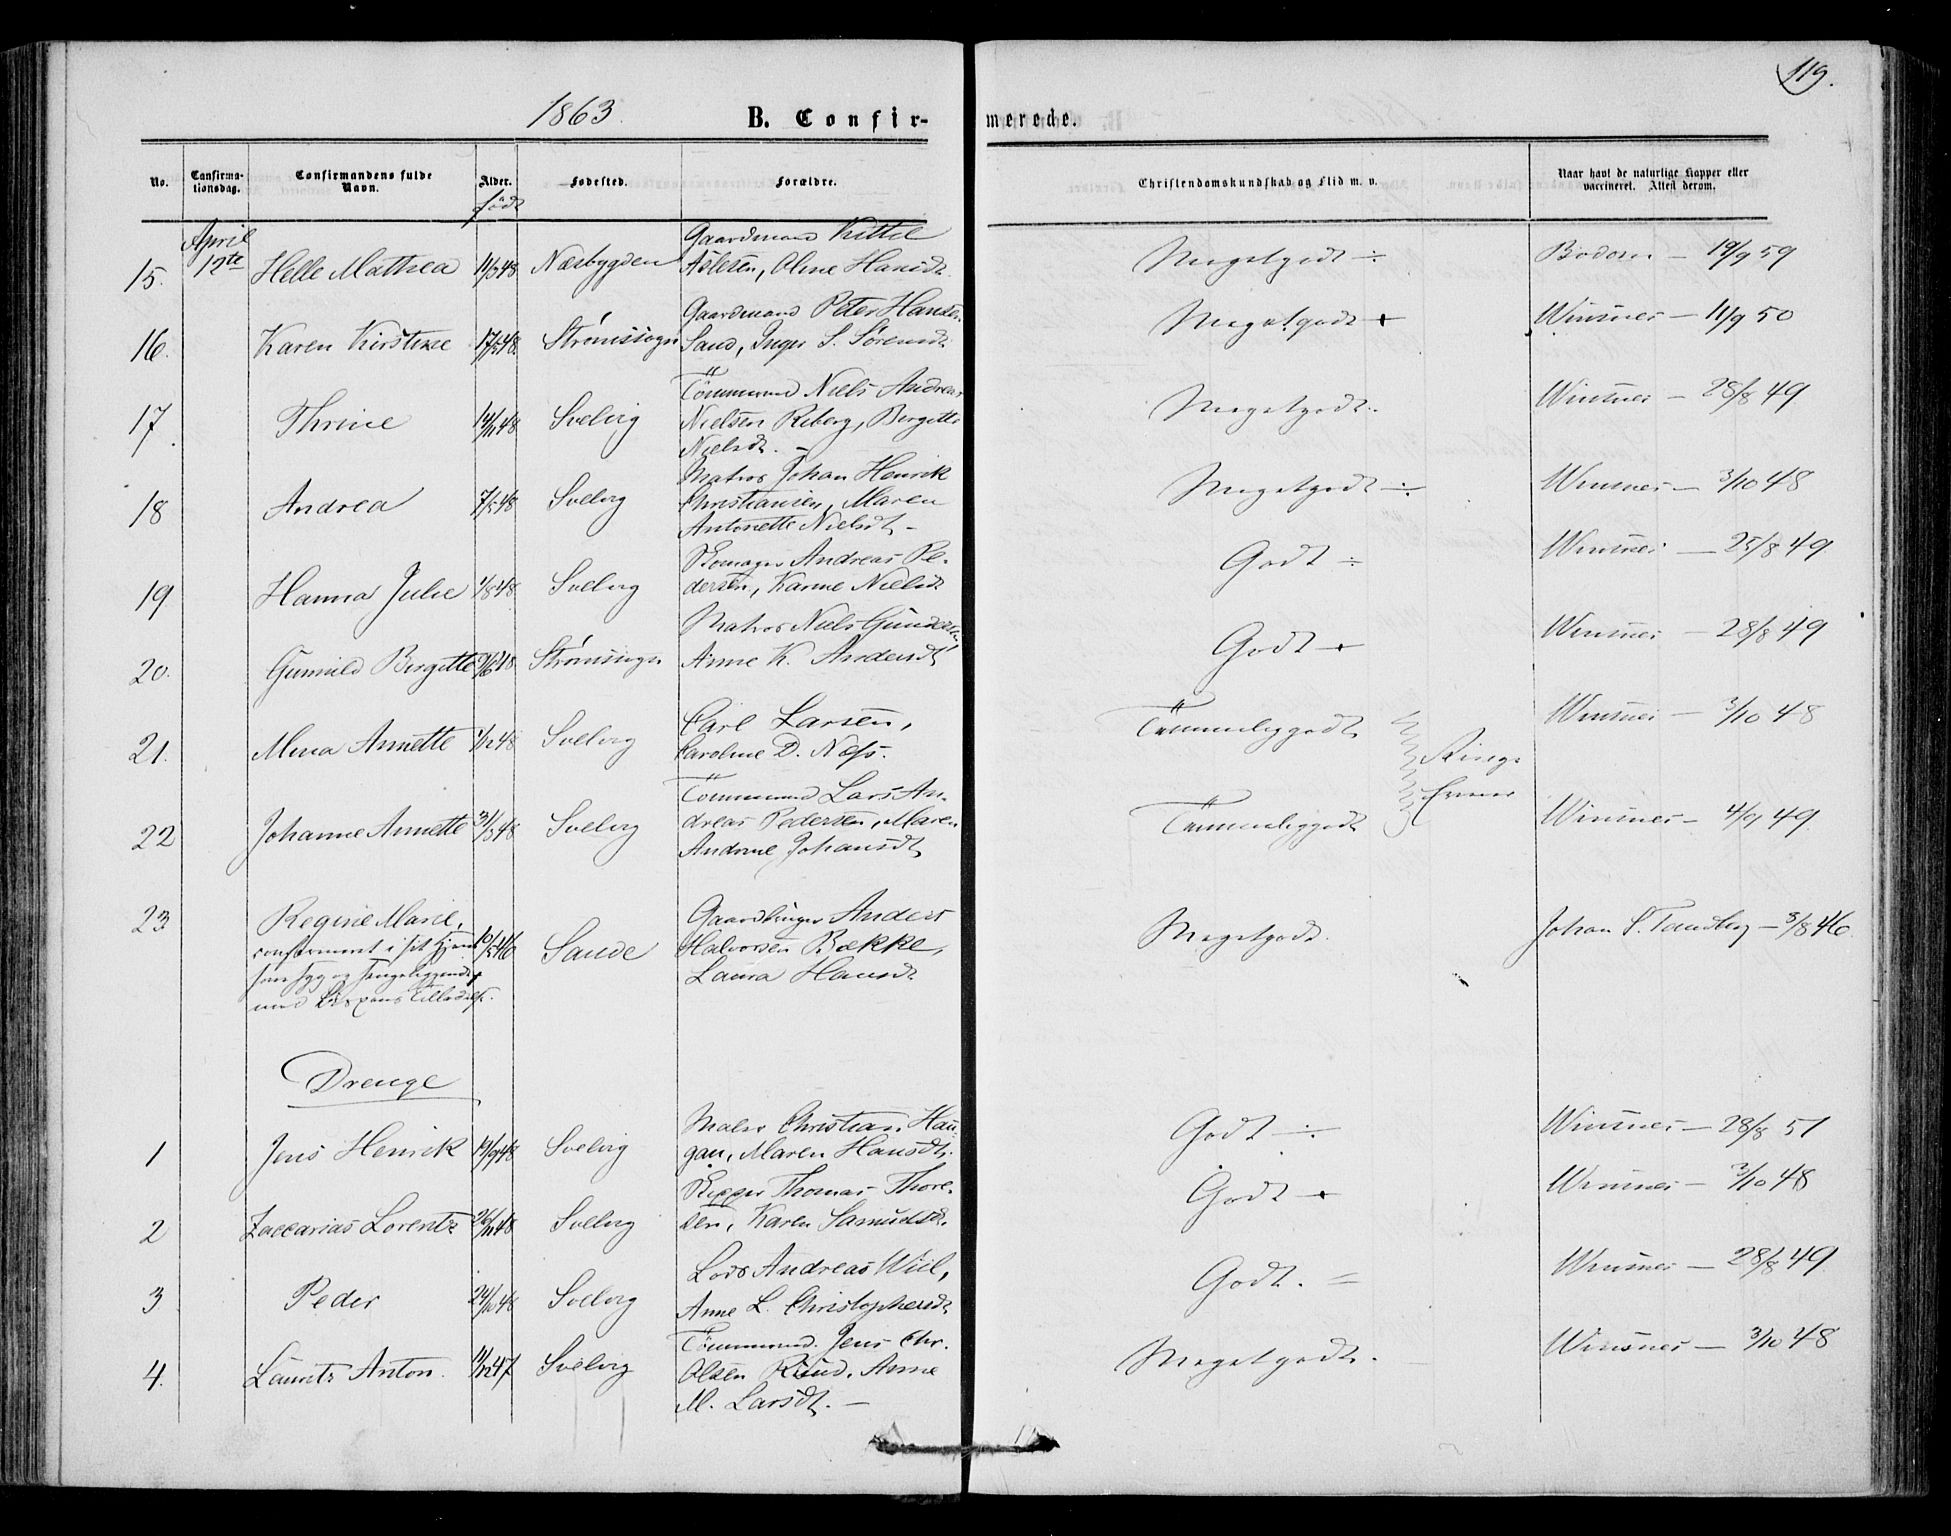 119.
1863. B. Confirmerede.
No. Confirmationsdag. Confirmandens fulde Navn. Alder. Fødested. Forældre. Christendomskundskab og Flid m. v. Naar havt de naturlige Kopper eller vaccineret. Attest derom.
født
April
12te
15. Helle Mathea Næsbygden Gaardmand Kittel
Aslesen, Meget godt ÷ 19/9 59
16. Karen Kirstine Strømssogn Gaardmand Peter Hansen
Sand, Inger S. Sørensdt. Meget godt + Winsnes — 11/9 50
17. Thrine 14/11 48 Svelvig Tömmermd Niels Andreas
Nielsen Reberg, Bergitte
Nielsdt. — Meget godt. Winsnes — 28/8 49
18 Andrea 7/5 48 Svelvig Matros Johan Henrik
Christiansen, Maren
Antonette Nielsdt. — Meget godt ÷ Winsnes — 3/10 48
19 Hanna Julie 1/8 48 Svelvig Skomager Andreas Pe-
dersen, Karine Nielsdt Godt ÷ Winsnes — 25/8 49
20. Gunnild Bergitte Strømssogn Matros Niels Gundersen
Anne K. Andersdt Godt + Winsnes — 28/8 49
21. Mina Annette Svelvig Carl Larsen,
Caroline D. Næss. Temmeliggodt Winsnes — 3/10 48
22 Johanne Annette 31/3 48 Svelvig Tömmermd Lars An-
dreas Pedersen, Maren
Andrine Johansdt Temmeliggodt Winsnes — 4/9 49
23 Regine Marie,
confirmeret i sit Hjem
som syg og sengeliggende
med Bispens Tilladelse. 10/5 46 Sande Gaardbruger Anders
Halvorsen Bække,
Laura Hansdt Meget godt. Johan S. Tandberg — 3/8 46
Drenge
1 Jens Henrik 19/9 48 Svelvig Maler Christian Hau-
gan, Maren Hansdt. Godt ÷ Winsnes — 28/8 51
2 Zaccarias Lorentz 26/11 48 Svelvig Skipper Thomas Thore-
sen, Karen Samuelsdt. Godt + Winsnes — 3/10 48
3 Peder 24/10 48 Svelvig Lods Andreas Wiil,
Anne L. Christophersdt Godt. = Winsnes — 28/8 49
4. Lauritz Anton. 11/12 47 Svelvig Tömmermd. Jens Chr.
Olsen Ruud, Anne
M. Larsdt. — Meget godt. Winsnes — 3/10 48